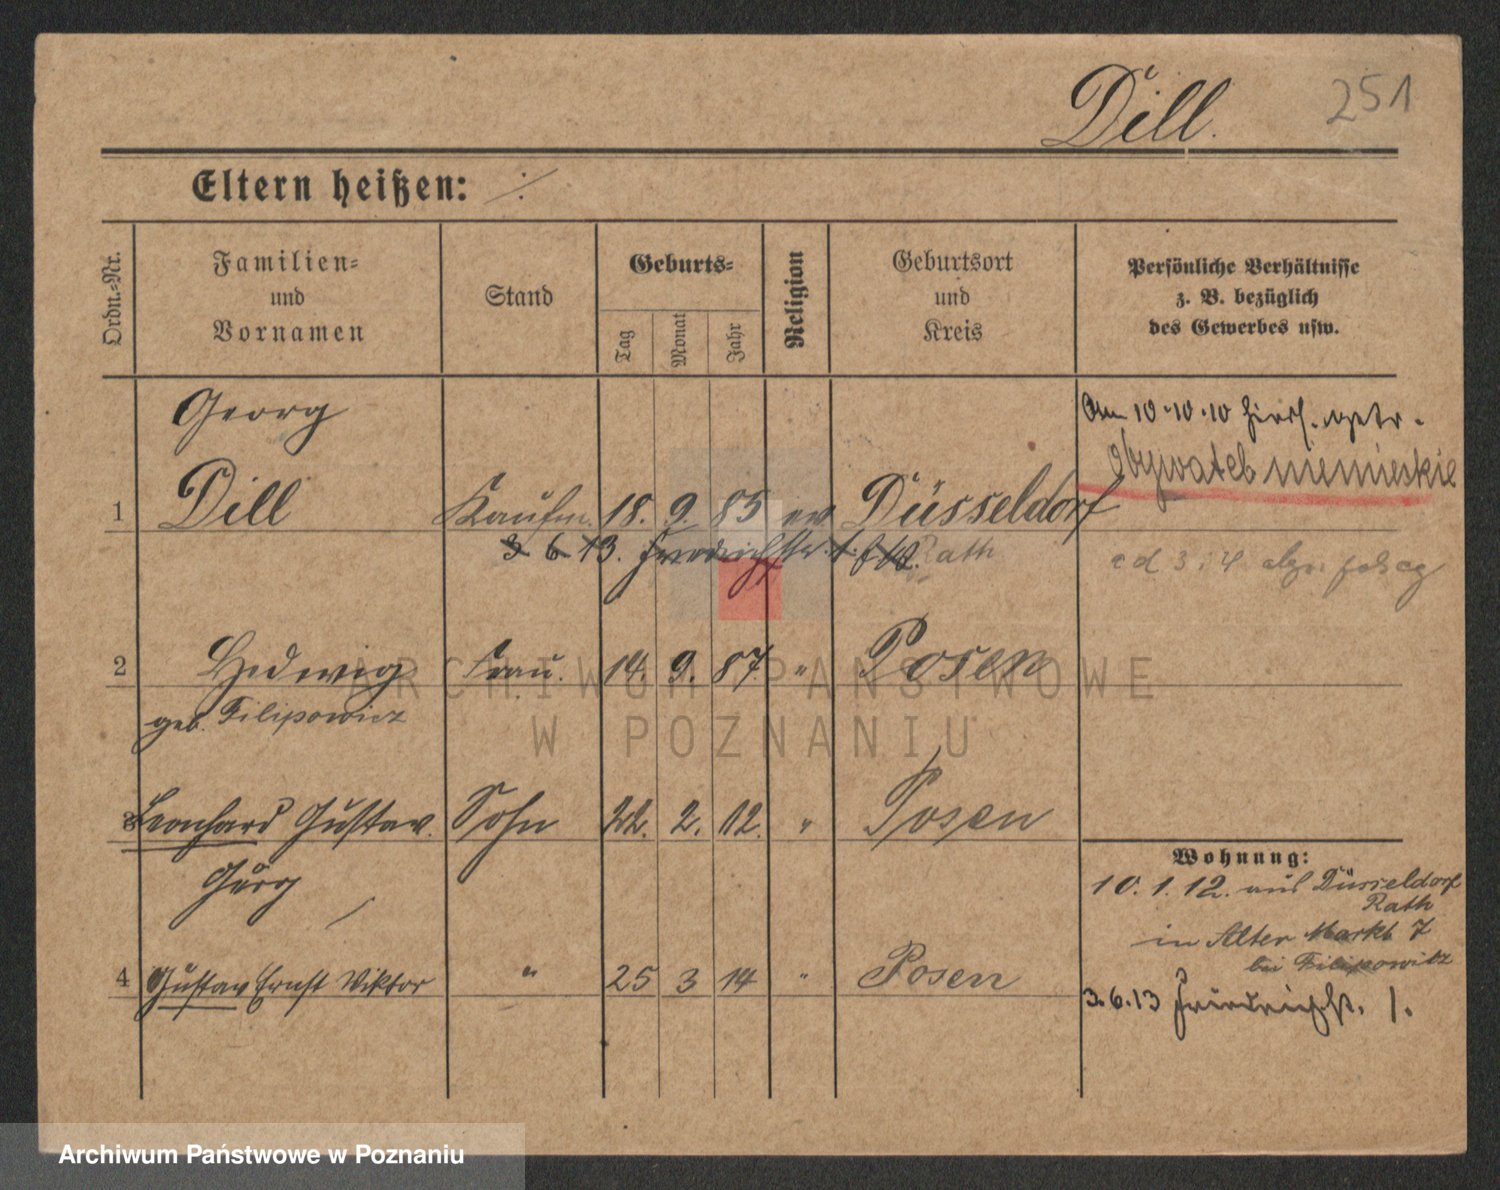 Dill. 251
Eltern heißen: ·/·
Ordn.-Nr. Familien- und Vornamen Stand Geburts- Tag Monat Jahr Religion Geburtsort und Kreis Persönliche Verhältnisse z. B. bezüglich des Gewerbes usw.
Georg
Am 10.10.10 hier getr.
obywatel niemieckie
1 Dill Kaufm. 18. 9. 85 ev Düsseldorf
3 6 13. Friedrichstr. 1. Rath
2 Hedwig Frau. 14. 9. 87 " Posen
geb. Filipowicz
3 Leonhard Gustav. Sohn 22. 2. 12. " Posen
Georg
Wohnung:
10. 1. 12. aus Düsseldorf
Rath
in Alter Markt 7
bei Filipowitz
4 Gustav Ernst Viktor " 25 3 14 " Posen
3.6.13 Friedrichst. 1.
ARCHIWUM PAŃSTWOWE
W POZNANIU
Archiwum Państwowe w Poznaniu